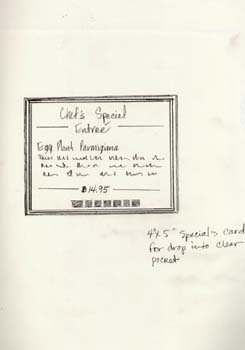 Chef's Special
Entree
Egg Plant Parmigiana
$14.95
4"x5" Specials card
for drop into clear
pocket